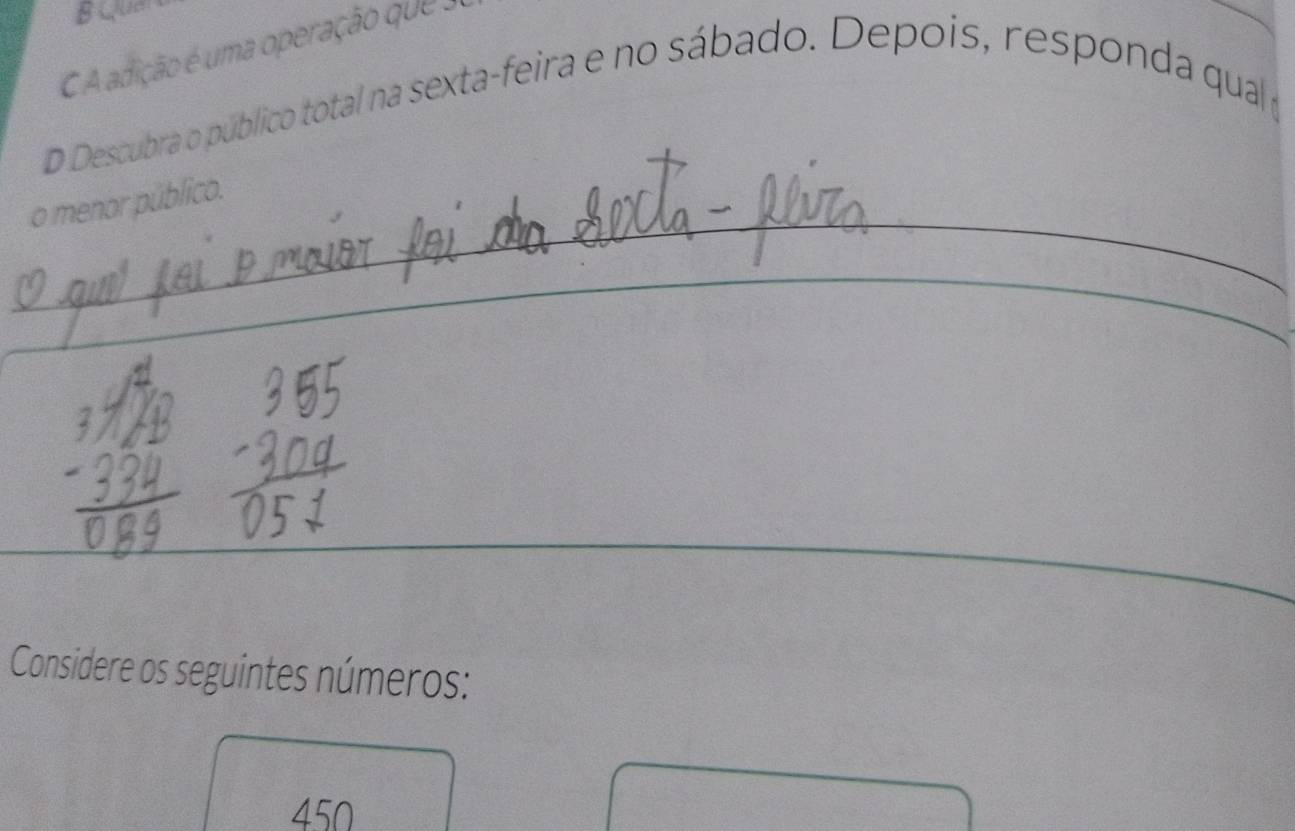 C A adição é uma operação que
D Descubra o público total na sexta-feira e no sábado. Depois, responda qual
o menor público.
O que foi o maior foi da sexta-feira
423 355
-334 -304
089 051
Considere os seguintes números:
450